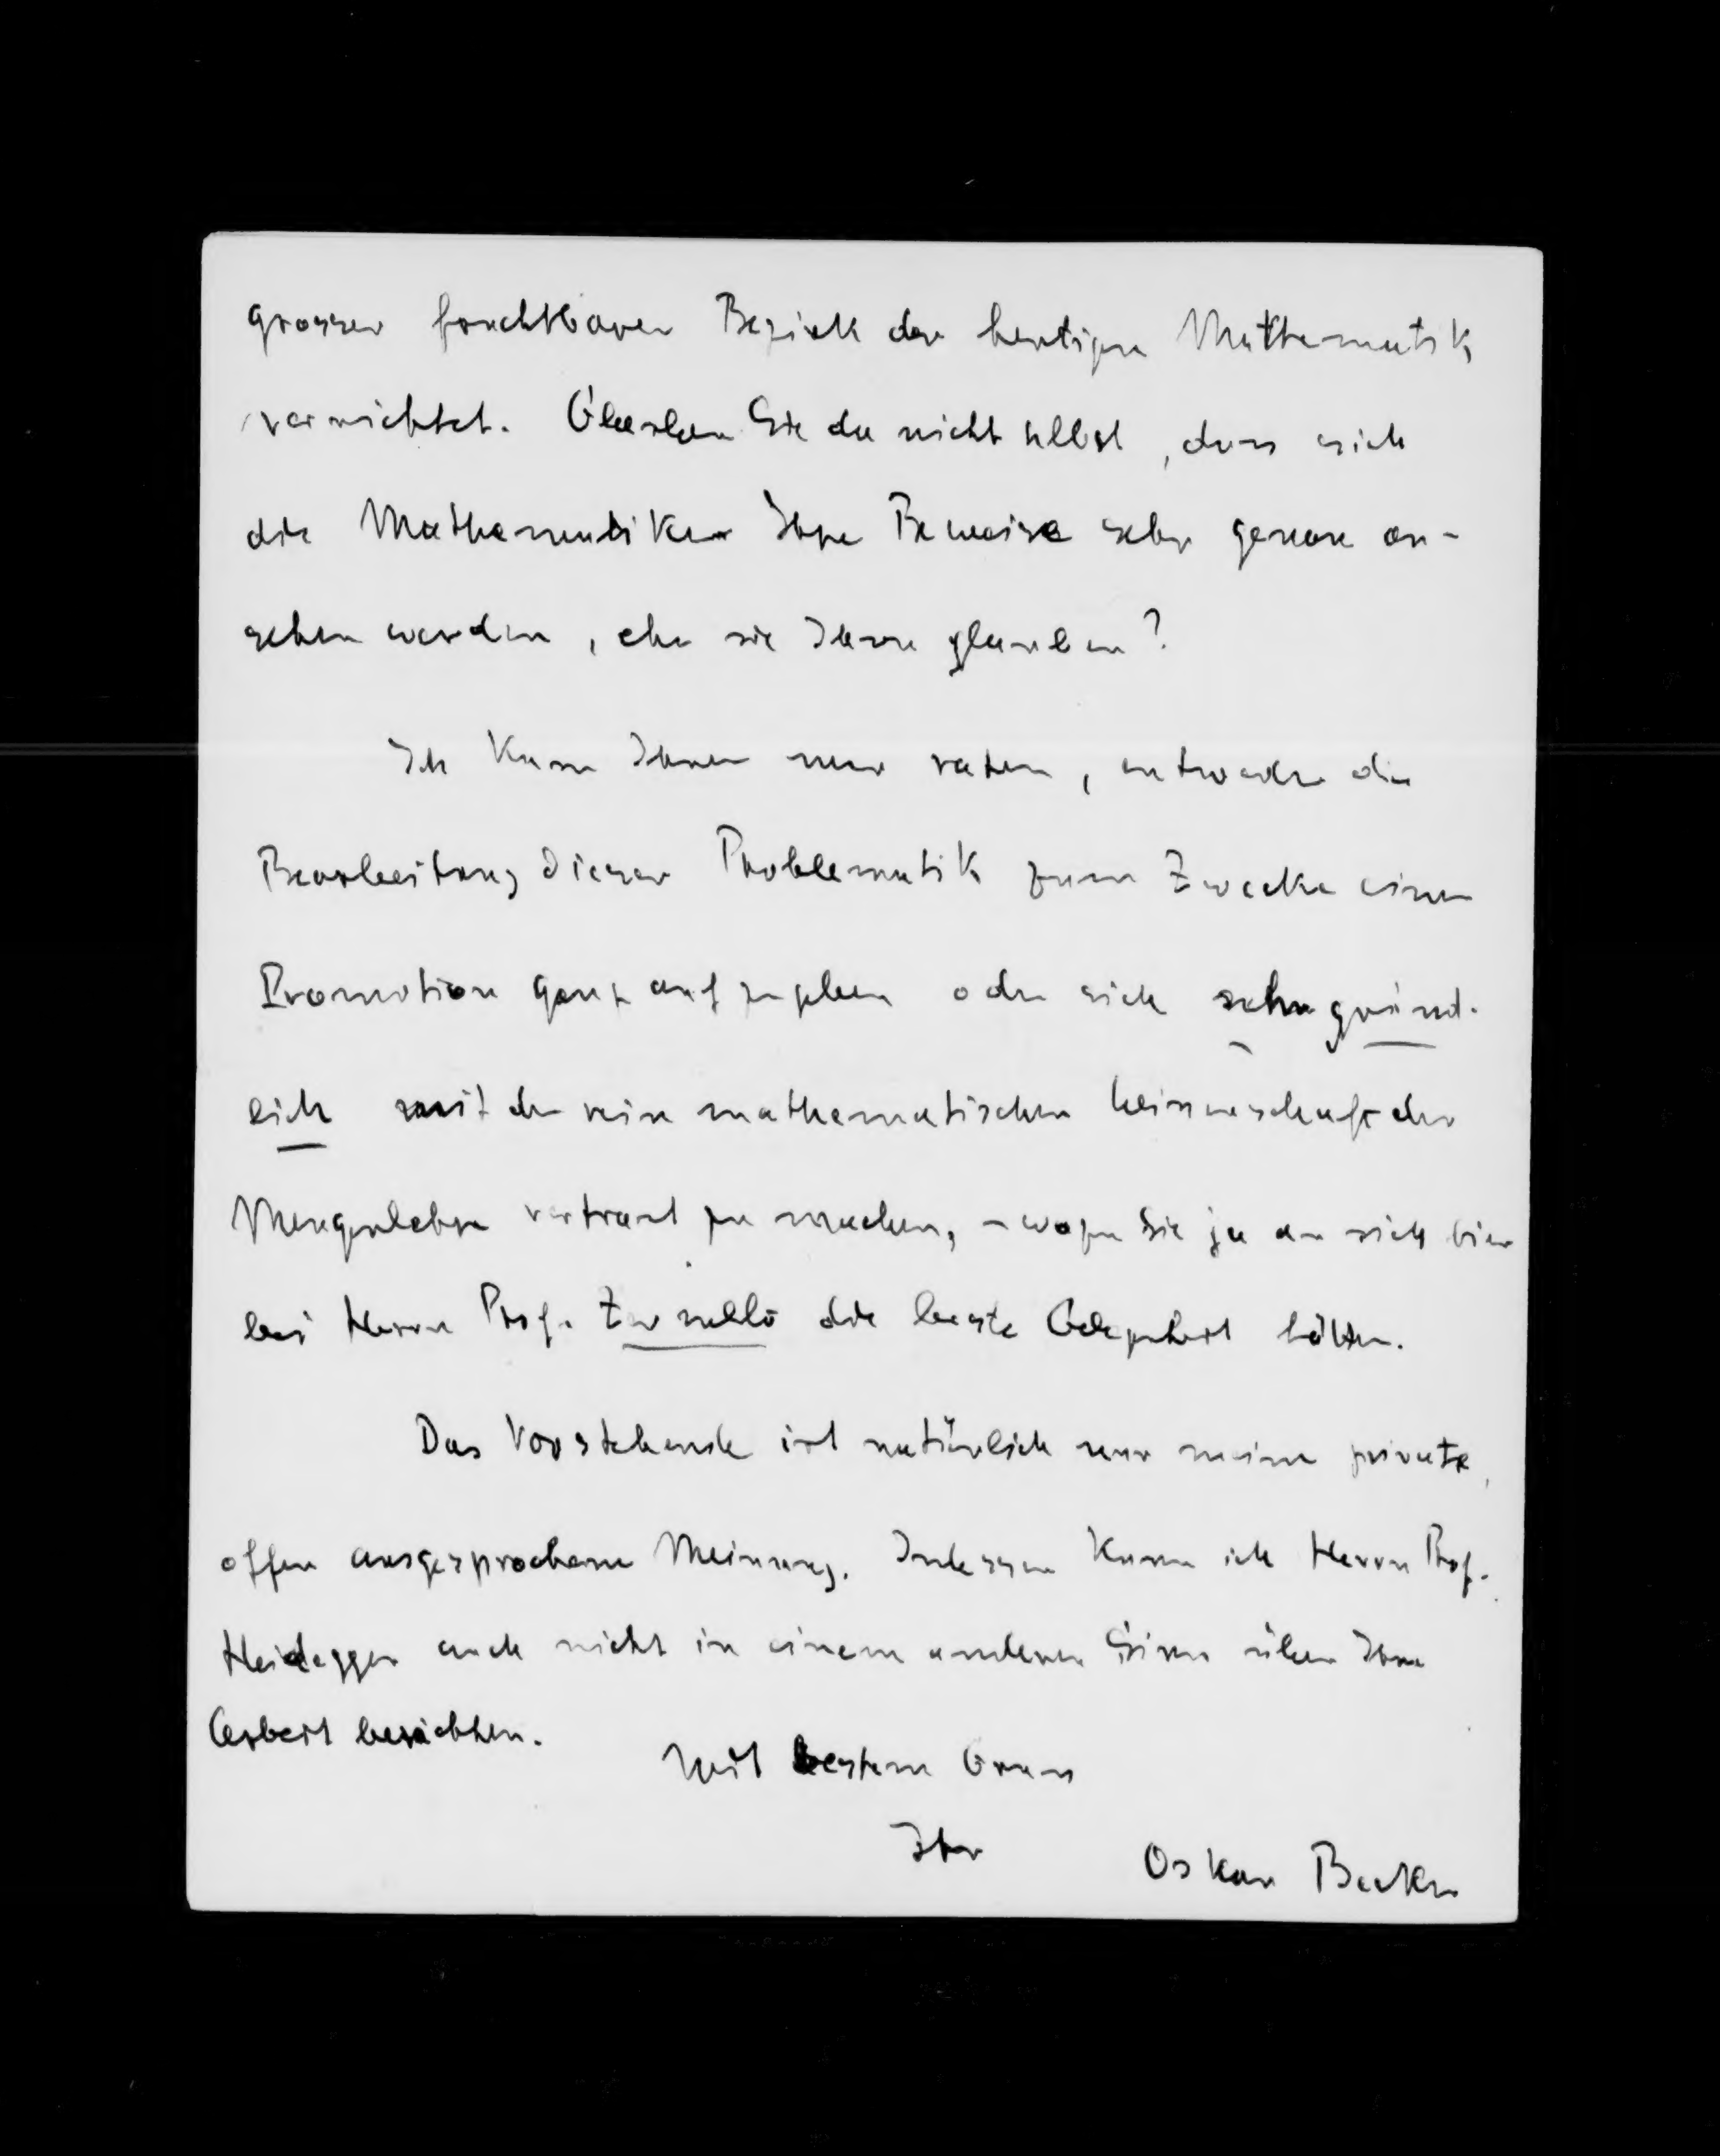 grosser fruchtbarer Bezirk der heutigen Mathematik
vernichtet. Glauben Sie da nicht selbst, dass sich
die Mathematiker Ihre Beweise sehr genau an-
sehen werden, ehe sie Ihnen glauben?
Ich kann Ihnen nur raten, entweder die
Bearbeitung dieser Problematik zum Zwecke einer
Promotion ganz aufzugeben oder sich sehr gründ-
lich mit der rein mathematischen der
Mengenlehre vertraut zu machen, – wozu Sie ja an sich hier
bei Herrn Prof. Zermelo die beste Gelegenheit hätten.
Das Vorstehende ist natürlich nur meine private,
offen ausgesprochene Meinung. Indessen kann ich Herrn Prof.
Heidegger auch nicht in einem anderen Sinne über Ihre
Arbeit berichten.
Mit bestem Gruss
Ihr Oskar Becker